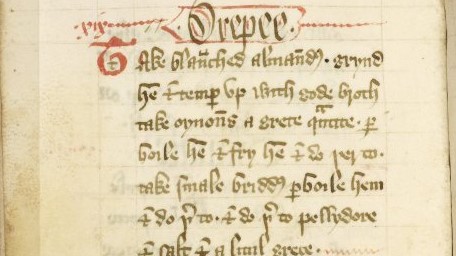 xix Drepee.
Take blaunched almandes. grynd
he & temper vp with gode broth
take oynons a grete qantite. per
boile he & fry he & do þerto.
take smale bridd perboile hem
& do þer to. & do þer to pellydore
& salt & a lituil grece.